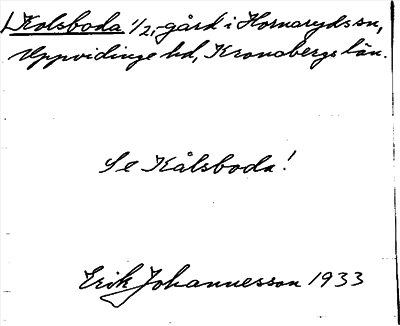 Kolsboda 1/2, gård i Hornaryds sn,
Uppvidinge hd, Kronobergs län.
Se Kålsboda!
Erik Johannesson 1933